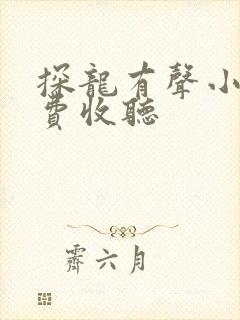 探龍有聲小
費收聽
霽六月